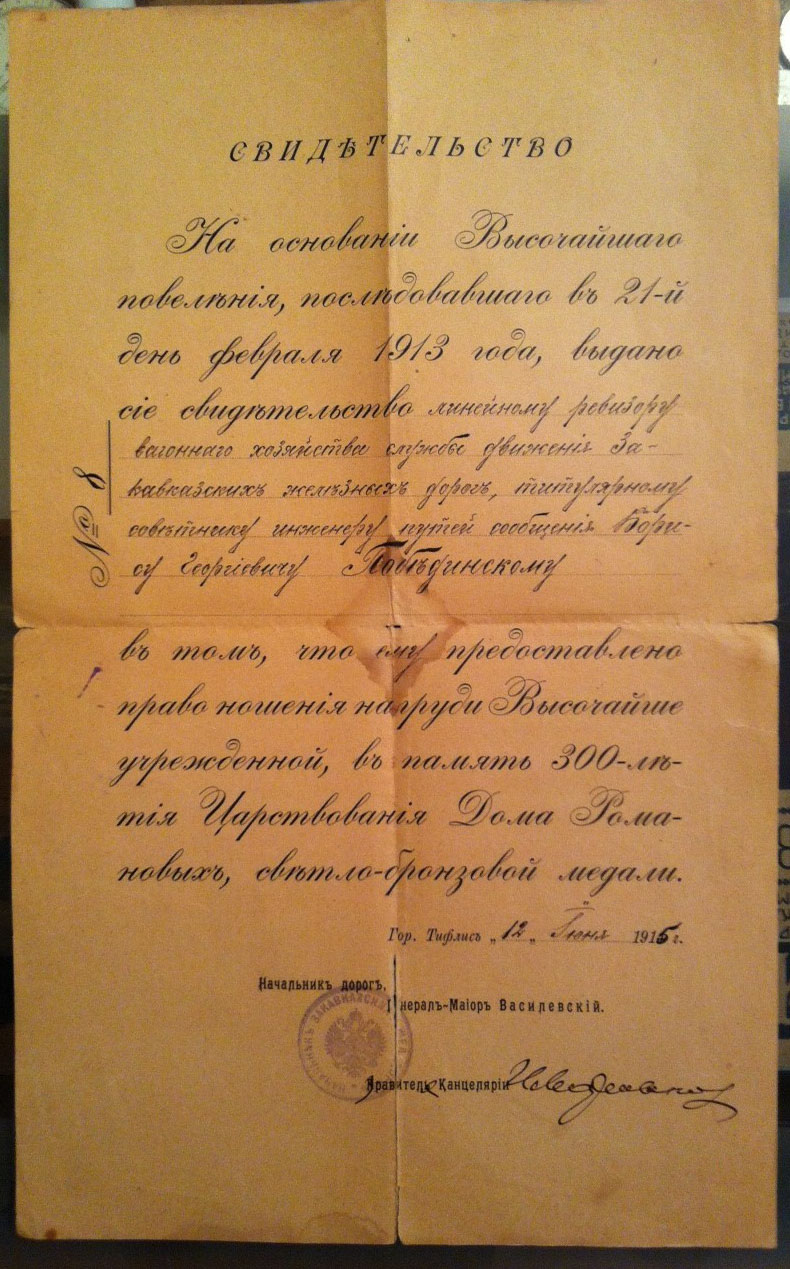 СВИДѢТЕЛЬСТВО
На основаніи Высочайшаго
повелѣнія, послѣдовавшаго въ 21-й
день февраля 1913 года, выдано
сіе свидѣтельство линейному ревизору
вагоннаго хозяйства службы движенія За-
кавказскихъ желѣзныхъ дорогъ, титулярному
совѣтнику инженеру путей сообщенія Бори-
су Георгіевичу Побѣдинскому
№ 8
въ томъ, что ему предоставлено
право ношенія на груди Высочайше
учрежденной, въ память 300-лѣ-
тія Царствованія Дома Рома-
новыхъ, свѣтло-бронзовой медали.
Гор. Тифлисъ „12„ Іюня 1915 г.
Начальникъ дорогъ,
Генералъ-Маіоръ Василевскій.
Правитель Канцеляріи